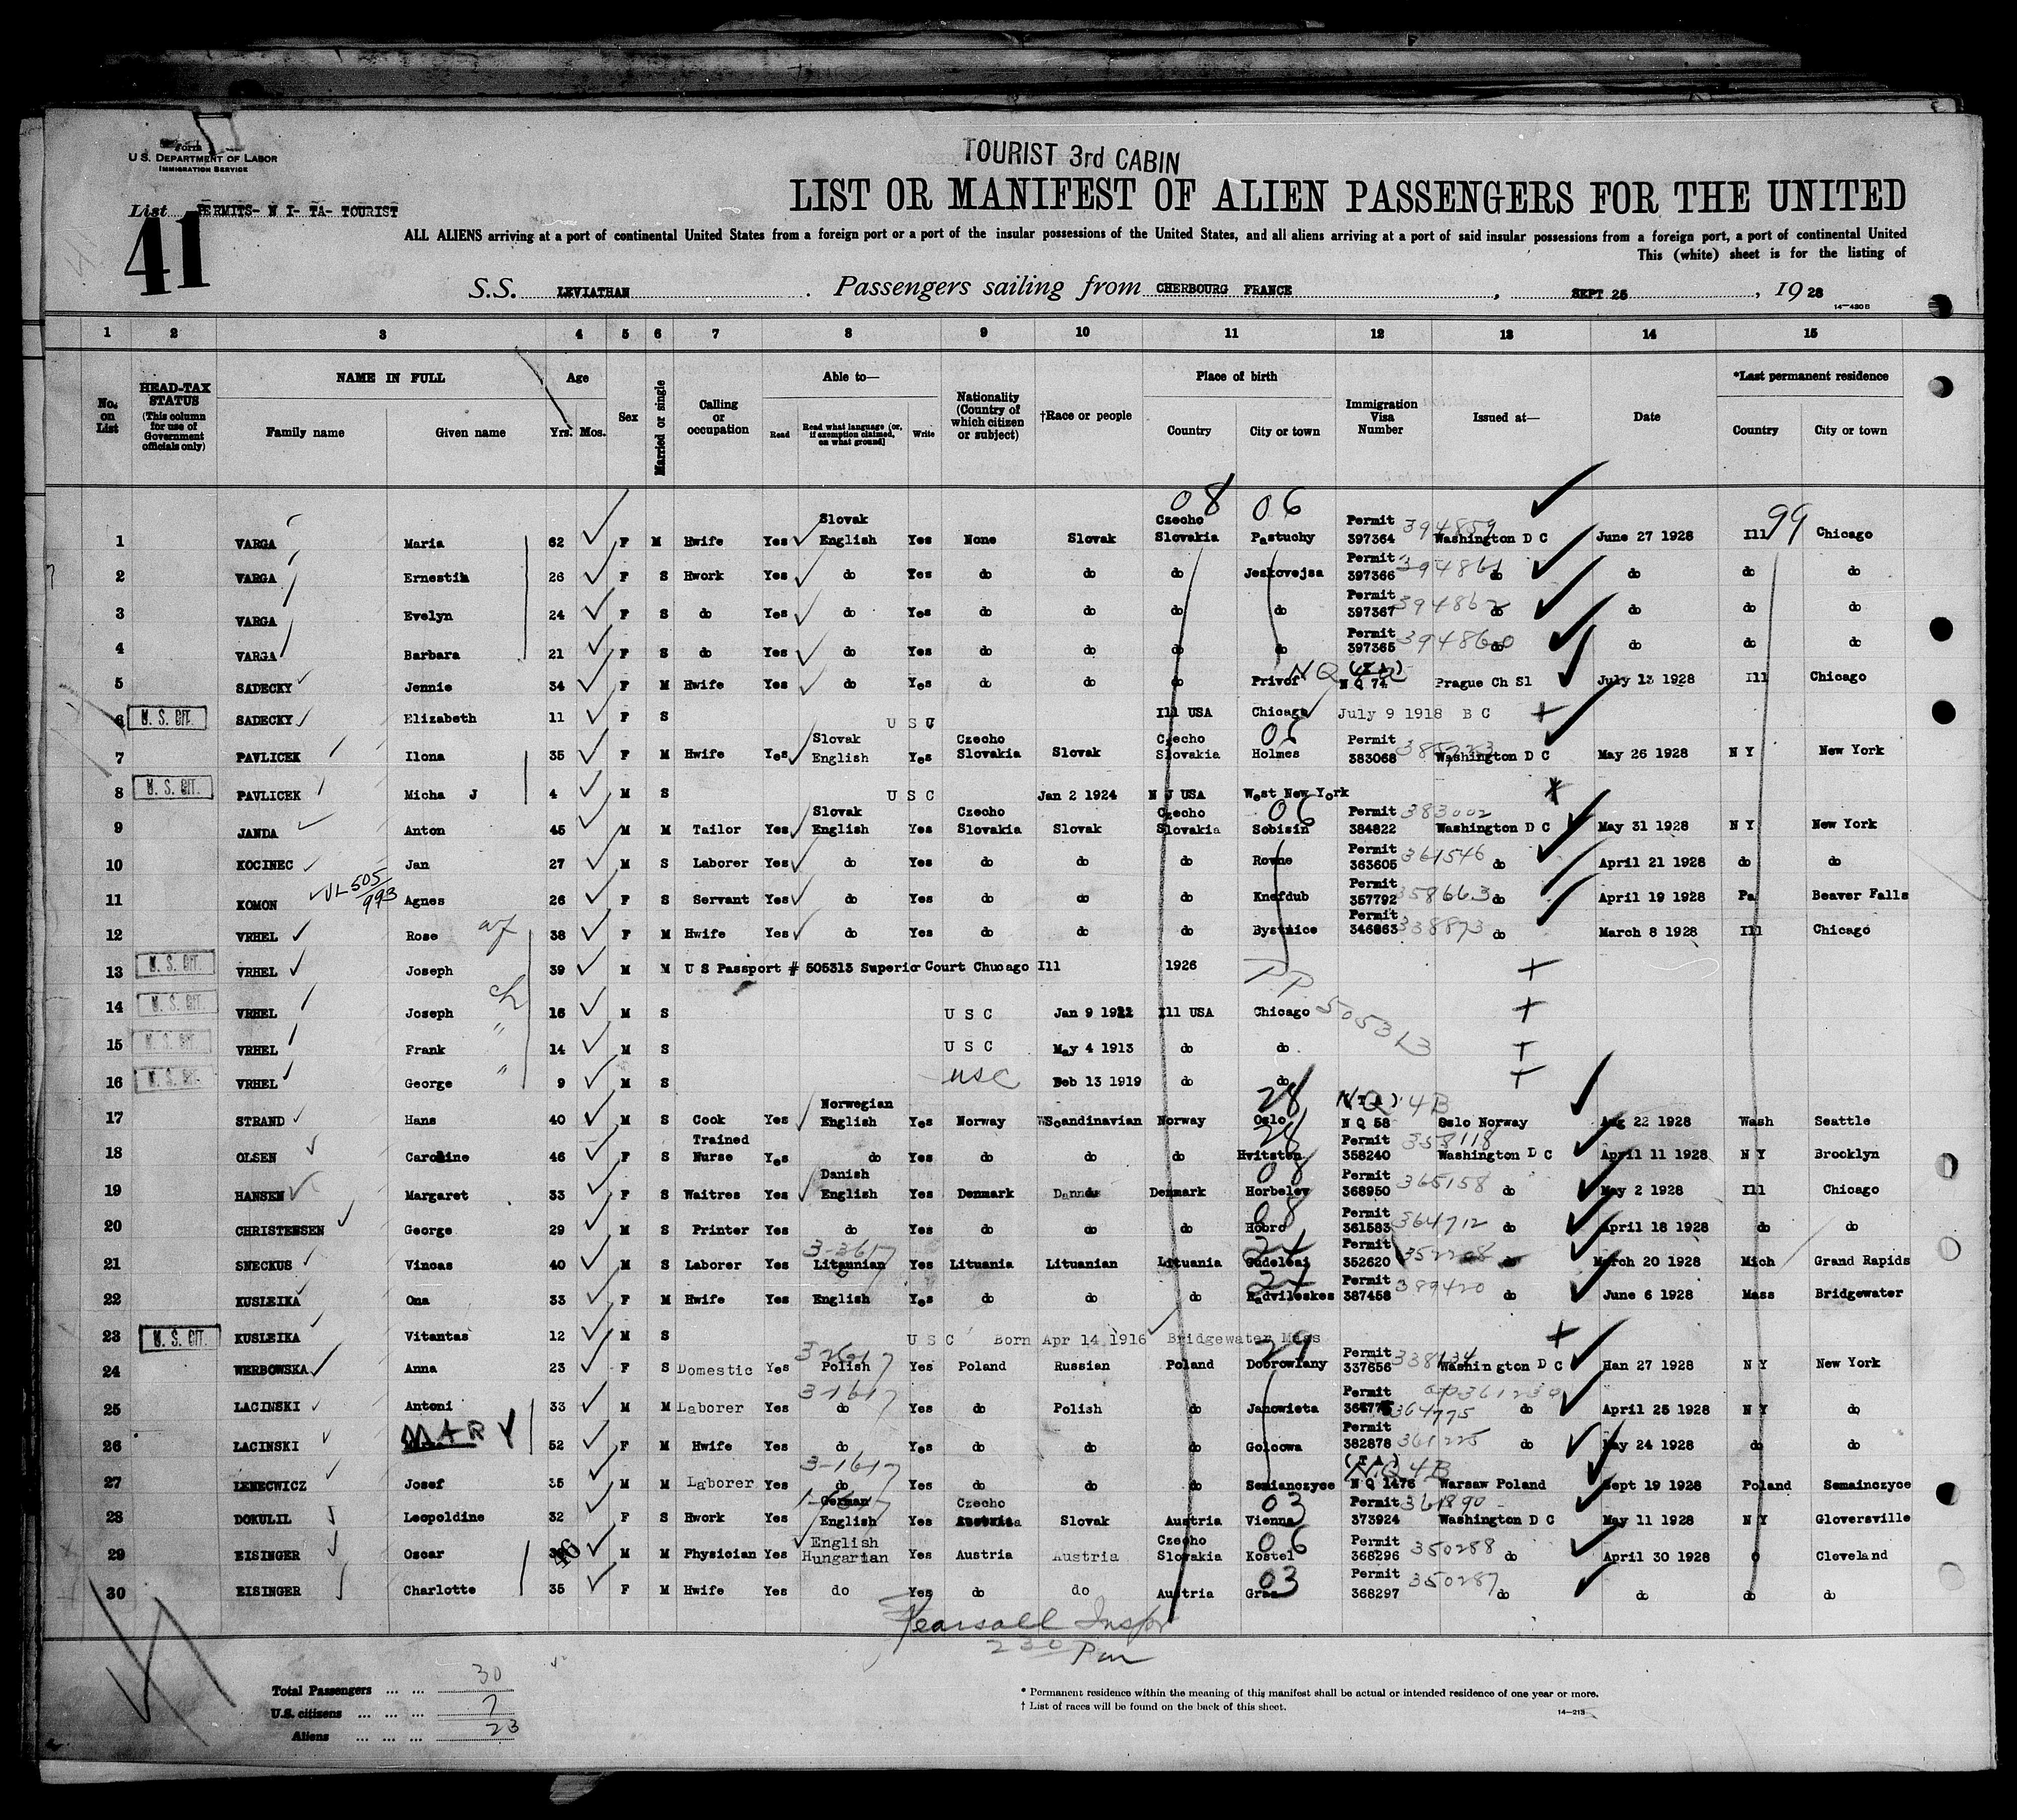 TOURIST 3rd CABIN
Form
U. S. DEPARTMENT OF LABOR
IMMIGRATION SERVICE
List PERMITS- N I- TA- TOURIST
41
LIST OR MANIFEST OF ALIEN PASSENGERS FOR THE UNITED
ALL ALIENS arriving at a port of continental United States from a foreign port or a port of the insular possessions of the United States, and all aliens arriving at a port of said insular possessions from a foreign port, a port of continental United
This (white) sheet is for the listing of
S.S. LEVIATHAN . Passengers sailing from CHERBOURG FRANCE , SEPT 25 , 19 28
14—430 B
1 2 3 4 5 6 7 8 9 10 11 12 13 14 15
No. on List
HEAD-TAX STATUS (This column for use of Government officials only)
NAME IN FULL Family name Given name
Age Yrs. Mos.
Sex
Married or single
Calling or occupation
Able to— Read Read what language [or, if exemption claimed, on what ground] Write
Nationality (Country of which citizen or subject)
†Race or people
Place of birth Country City or town
Immigration Visa Number
Issued at—
Date
*Last permanent residence Country City or town
08 06 99
1 VARGA Maria 62 F M Hwife Yes Slovak English Yes None Slovak Czecho Slovakia Pastuchy Permit 397364 394859 Washington D C June 27 1928 Ill Chicago
2 VARGA Ernestin 26 F S Hwork Yes do Yes do do do Jeskovejsa Permit 397366 394861 do do do do
3 VARGA Evelyn 24 F S do Yes do Yes do do do do Permit 397367 394862 do do do do
4 VARGA Barbara 21 F S do Yes do Yes do do do do Permit 397365 394860 do do do do
5 SADECKY Jennie 34 F M Hwife Yes do Yes do do do Privor (T A) N Q 74 Prague Ch Sl July 13 1928 Ill Chicago
6 U. S. CIT. SADECKY Elizabeth 11 F S U S C Ill USA Chicago July 9 1918 B C
7 PAVLICEK Ilona 35 F M Hwife Yes Slovak English Yes Czecho Slovakia Slovak Czecho Slovakia Holmes 06 Permit 383068 Washington D C May 26 1928 N Y New York
8 U. S. CIT. PAVLICEK Micha J 4 M S U S C Jan 2 1924 N J USA West New York
9 JANDA Anton 45 M M Tailor Yes Slovak English Yes Czecho Slovakia Slovak Czecho Slovakia Sobisin 06 Permit 384822 383002 Washington D C May 31 1928 N Y New York
10 KOCINEC Jan 27 M S Laborer Yes do Yes do do do Rovne Permit 363605 361546 do April 21 1928 do do
11 KOMON VL 505/993 Agnes 26 F S Servant Yes do Yes do do do Knefdub Permit 357792 358663 do April 19 1928 Pa Beaver Falls
12 VRHEL Rose wf 38 F M Hwife Yes do Yes do do do Bystnice Permit 346863 338873 do March 8 1928 Ill Chicago
13 U. S. CIT. VRHEL Joseph 39 M M U S Passport # 505313 Superior Court Chucago Ill 1926 P.P. 505313
14 U. S. CIT. VRHEL Joseph ch 16 M S U S C Jan 9 1912 Ill USA Chicago
15 U. S. CIT. VRHEL Frank " 14 M S U S C May 4 1913 do do
16 U. S. CIT. VRHEL George " 9 M S USC Feb 13 1919 do do
17 STRAND Hans 40 M S Cook Yes Norwegian English Yes Norway Scandinavian Norway Oslo 28 (T A) N Q 58 NQ 4B Oslo Norway Aug 22 1928 Wash Seattle
18 OLSEN Caroline 46 F S Trained Nurse Yes do Yes do do do Hvitsten 28 Permit 358240 358118 Washington D C April 11 1928 N Y Brooklyn
19 HANSEN Margaret 33 F S Waitres Yes Danish English Yes Denmark Denmark Horbelev 08 Permit 368950 365158 do May 2 1928 Ill Chicago
20 CHRISTENSEN George 29 M S Printer Yes do Yes do do do Hobro 08 Permit 361583 364712 do April 18 1928 do do
21 SNECKUS Vincas 40 M S Laborer Yes Litaunian Yes Lituania Lituanian Lituania Gudeleai 24 Permit 352620 352208 do March 20 1928 Mich Grand Rapids
22 KUSLEIKA Ona 33 F M Hwife Yes English Yes do do do Radvileskes 24 Permit 387458 389420 do June 6 1928 Mass Bridgewater
23 U. S. CIT. KUSLEIKA Vitantas 12 M S U S C Born Apr 14 1916 Bridgewater Mass
24 WERBOWSKA Anna 23 F S Domestic Yes Polish Yes Poland Russian Poland Dobrowlany 29 Permit 337656 338134 Washington D C Han 27 1928 N Y New York
25 LACINSKI Antoni 33 M M Laborer Yes 3-1617 do Yes do Polish do Janowieta Permit 364775 do April 25 1928 N Y do
26 LACINSKI MARY 52 F M Hwife Yes do Yes do do do Golcowa Permit 382878 361225 do May 24 1928 do do
27 LENECWICZ Josef 35 M M Laborer Yes 3-1617 do Yes do do do Semianczyce (T A) N Q 1476 NQ 4B Warsaw Poland Sept 19 1928 Poland Semainczyce
28 DOKULIL Leopoldine 32 F S Hwork Yes German English Yes Czecho Slovak Austria Vienna 03 Permit 373924 361890 Washington D C May 11 1928 N Y Gloversville
29 EISINGER Oscar 46 M M Physician Yes English Hungarian Yes Austria Austria Czecho Slovakia Kostel 06 Permit 368296 350288 do April 30 1928 O Cleveland
30 EISINGER Charlotte 35 F M Hwife Yes do Yes do do Austria Graz 03 Permit 368297 350287 do do do do
Pearsall Inspr
230 Pm
Total Passengers ... ... 30
U.S. citizens ... ... ... 7
Aliens ... ... ... 23
* Permanent residence within the meaning of this manifest shall be actual or intended residence of one year or more.
† List of races will be found on the back of this sheet.
14—213